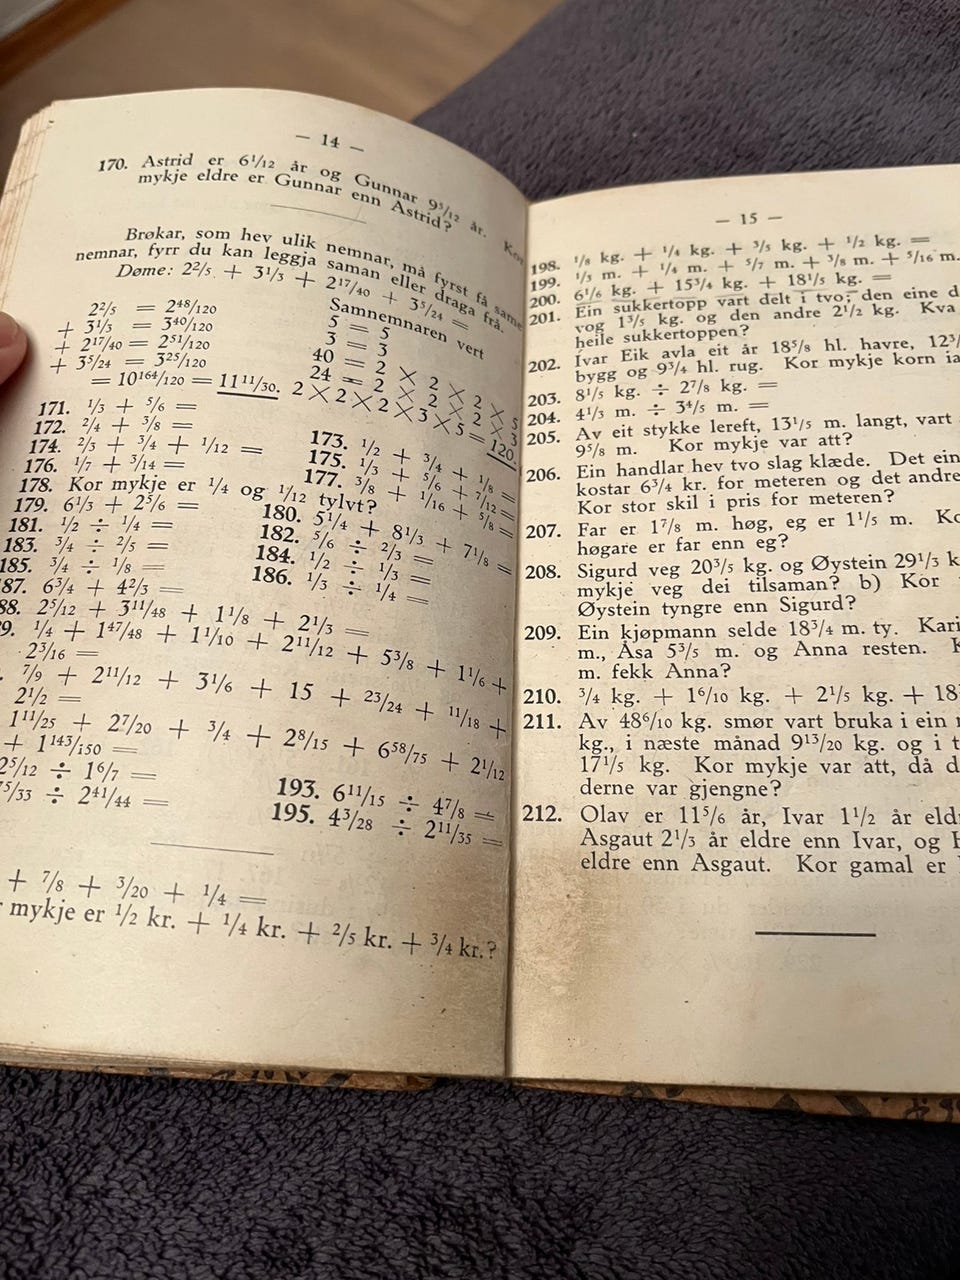 — 14 —
170. Astrid er 6 1/12 år og Gunnar 9 5/12 år. Kor
mykje eldre er Gunnar enn Astrid?
Brøkar, som hev ulik nemnar, må fyrst få same
nemnar, fyrr du kan leggja saman eller draga frå.
Døme: 2 2/5 + 3 1/3 + 2 17/40 + 3 5/24 =
Samnemnaren vert
2 2/5 = 2 48/120
+ 3 1/3 = 3 40/120
+ 2 17/40 = 2 51/120
+ 3 5/24 = 3 25/120
= 10 164/120 = 11 11/30.
5 = 5
3 = 3
40 = 2 × 2 × 2 × 5
24 = 2 × 2 × 2 × 3
2 × 2 × 2 × 3 × 5 = 120.
171. 1/3 + 5/6 =
172. 2/4 + 3/8 =
173. 1/2 + 3/4 + 1/8 =
174. 2/3 + 3/4 + 1/12 =
175. 1/3 + 5/6 + 7/12 =
176. 1/7 + 3/14 =
177. 3/8 + 1/16 + 5/8 =
178. Kor mykje er 1/4 og 1/12 tylvt?
179. 6 1/3 + 2 5/6 =
180. 5 1/4 + 8 1/3 + 7 1/8 =
181. 1/2 ÷ 1/4 =
182. 5/6 ÷ 2/3 =
183. 3/4 ÷ 2/5 =
184. 1/2 ÷ 1/3 =
185. 3/4 ÷ 1/8 =
186. 1/3 ÷ 1/4 =
87. 6 3/4 + 4 2/3 =
88. 2 5/12 + 3 11/48 + 1 1/8 + 2 1/3 =
9. 1/4 + 1 47/48 + 1 1/10 + 2 11/12 + 5 3/8 + 1 1/6 +
2 3/16 =
7/9 + 2 11/12 + 3 1/6 + 15 + 23/24 + 11/18 +
2 1/2 =
1 11/25 + 2 7/20 + 3/4 + 2 8/15 + 6 58/75 + 2 1/12
+ 1 143/150 =
2 5/12 ÷ 1 6/7 =
193. 6 11/15 ÷ 4 7/8 =
5/33 ÷ 2 41/44 =
195. 4 3/28 ÷ 2 11/35 =
+ 7/8 + 3/20 + 1/4 =
mykje er 1/2 kr. + 1/4 kr. + 2/5 kr. + 3/4 kr.?
— 15 —
198. 1/8 kg. + 1/4 kg. + 3/5 kg. + 1/2 kg. =
199. 1/3 m. + 1/4 m. + 5/7 m. + 3/8 m. + 5/16 m.
200. 6 1/6 kg. + 15 3/4 kg. + 18 1/5 kg. =
201. Ein sukkertopp vart delt i tvo; den eine
vog 1 3/5 kg. og den andre 2 1/2 kg. Kva
heile sukkertoppen?
202. Ivar Eik avla eit år 18 5/8 hl. havre,
bygg og 9 3/4 hl. rug. Kor mykje korn
203. 8 1/5 kg. ÷ 2 7/8 kg. =
204. 4 1/3 m. ÷ 3 4/5 m. =
205. Av eit stykke lereft, 13 1/5 m. langt, vart
9 5/8 m. Kor mykje var att?
206. Ein handlar hev tvo slag klæde. Det
kostar 6 3/4 kr. for meteren og det andre
Kor stor skil i pris for meteren?
207. Far er 1 7/8 m. høg, eg er 1 1/5 m.
høgare er far enn eg?
208. Sigurd veg 20 3/5 kg. og Øystein 29 1/3
mykje veg dei tilsaman? b) Kor
Øystein tyngre enn Sigurd?
209. Ein kjøpmann selde 18 3/4 m. ty. Kari
m., Åsa 5 3/5 m. og Anna resten.
m. fekk Anna?
210. 3/4 kg. + 1 6/10 kg. + 2 1/5 kg. + 18
211. Av 48 6/10 kg. smør vart bruka i ein
kg., i næste månad 9 13/20 kg. og i
17 1/5 kg. Kor mykje var att, då
derne var gjengne?
212. Olav er 11 5/6 år, Ivar 1 1/2 år
Asgaut 2 1/3 år eldre enn Ivar, og
eldre enn Asgaut. Kor gamal er